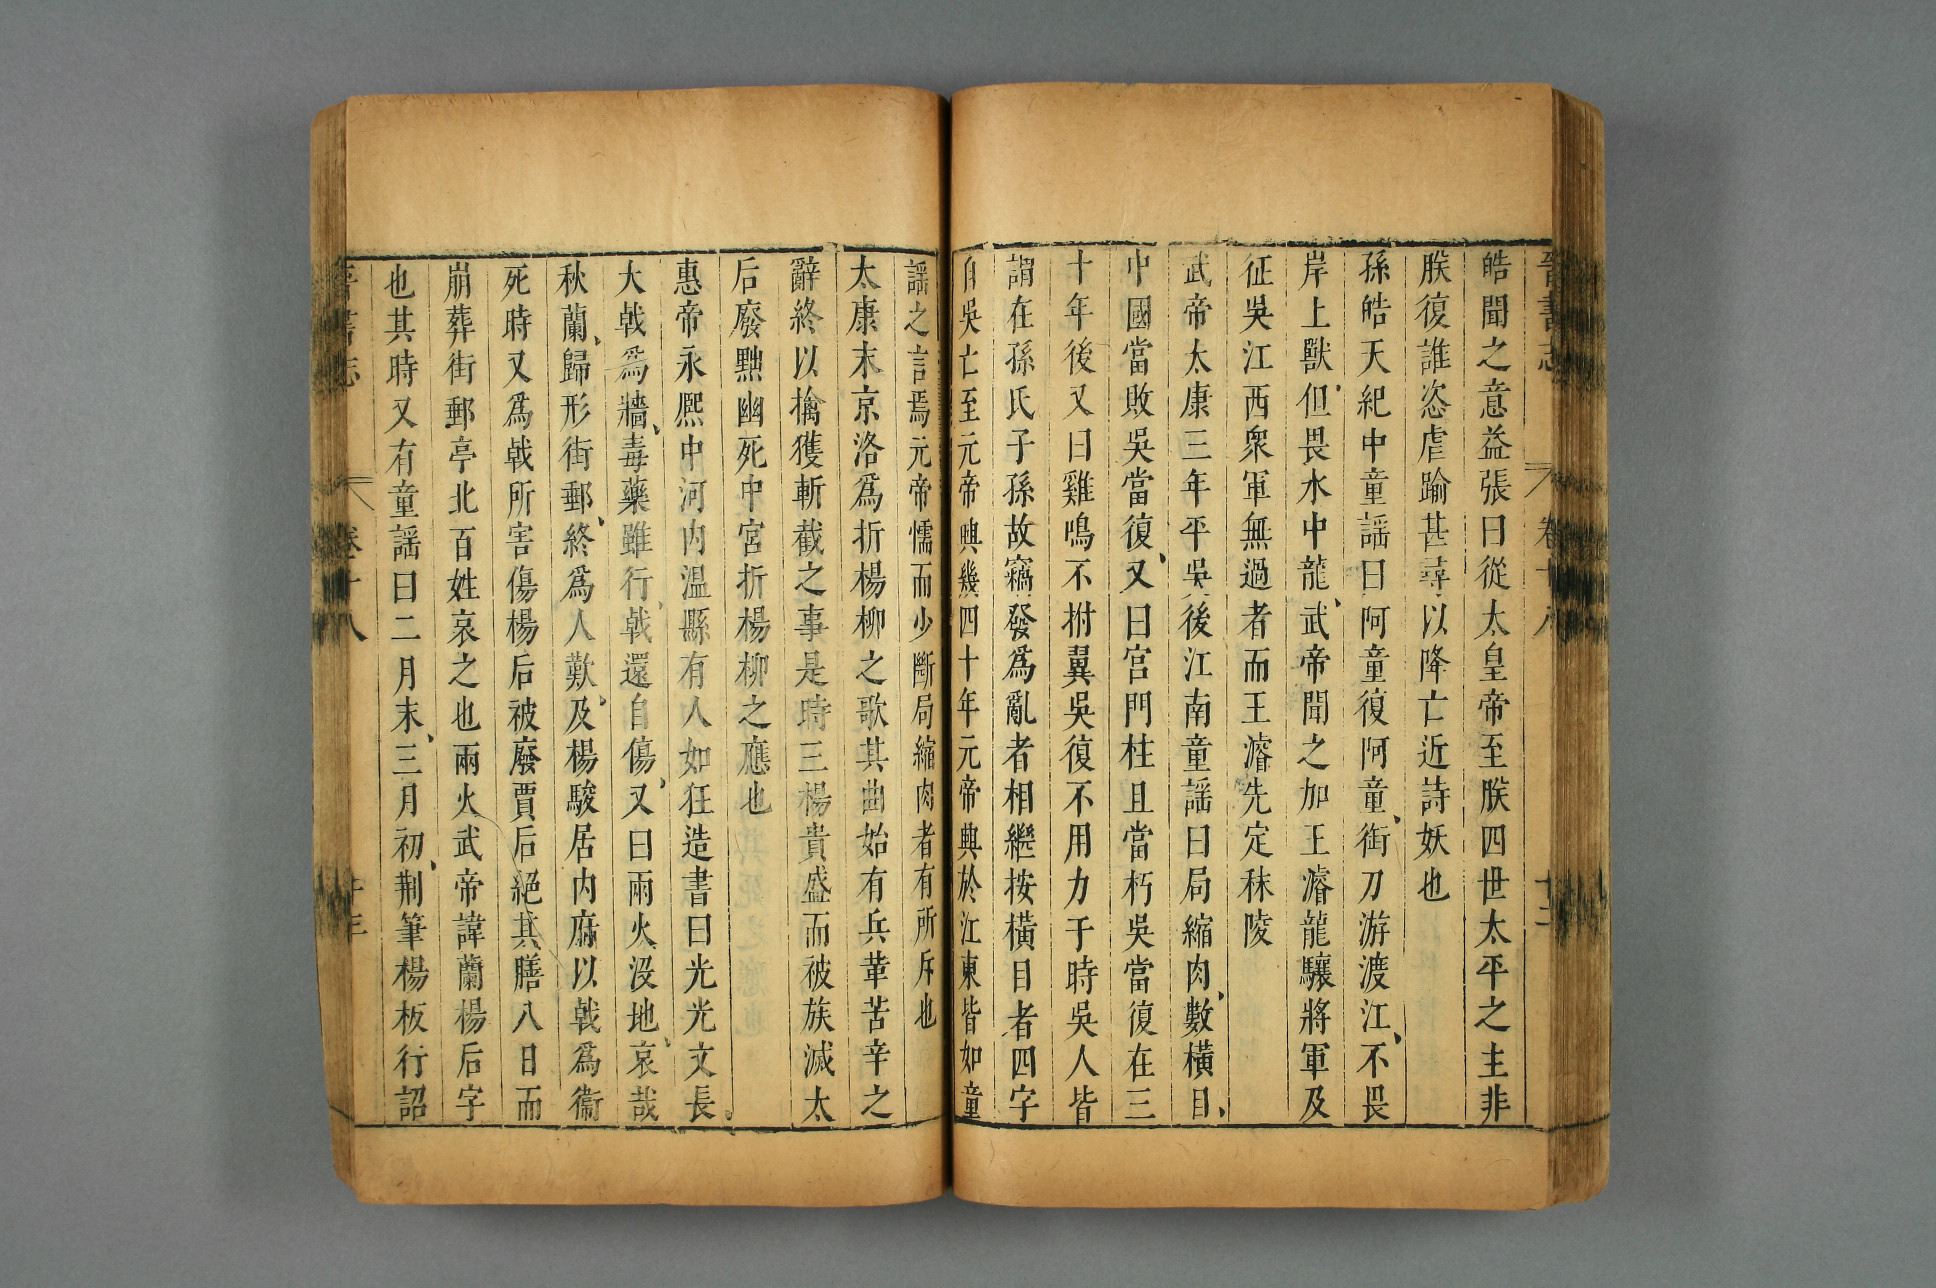 晉書志 卷十八 十二
皓聞之意益張曰從太皇帝至朕四世太平之主非
朕復誰恣虐踰甚尋以降亡近詩妖也
孫皓天紀中童謡曰阿童復阿童、銜刀游渡江、不畏
岸上獸、但畏水中龍、武帝聞之加王濬龍驤將軍及
征吳江西衆軍無過者而王濬先定秣陵
武帝太康三年平吳後江南童謡曰局縮肉、數橫目、
中國當敗吳當復、又曰宮門柱且當朽吳當復在三
十年後又曰雞鳴不拊翼吳復不用力于時吳人皆
謂在孫氏子孫故竊發爲亂者相繼按橫目者四字
自吳亡至元帝興幾四十年元帝興於江東皆如童
謡之言焉元帝懦而少斷局縮肉者有所斥也
太康末京洛爲折楊柳之歌其曲始有兵革苦辛之
辭終以擒獲斬截之事是時三楊貴盛而被族滅太
后廢黜幽死中宮折楊柳之應也
惠帝永熈中河内温縣有人如狂造書曰光光文長、
大戟爲牆、毒藥雖行、戟還自傷、又曰兩火没地、哀哉
秋蘭、歸形街郵、終爲人歎、及楊駿居内府以戟爲衞
死時又爲戟所害傷楊后被廢賈后絕其膳八日而
崩葬街郵亭北百姓哀之也兩火武帝諱蘭楊后字
也其時又有童謡曰二月末、三月初、荆筆楊板行詔
晉書志 卷十八